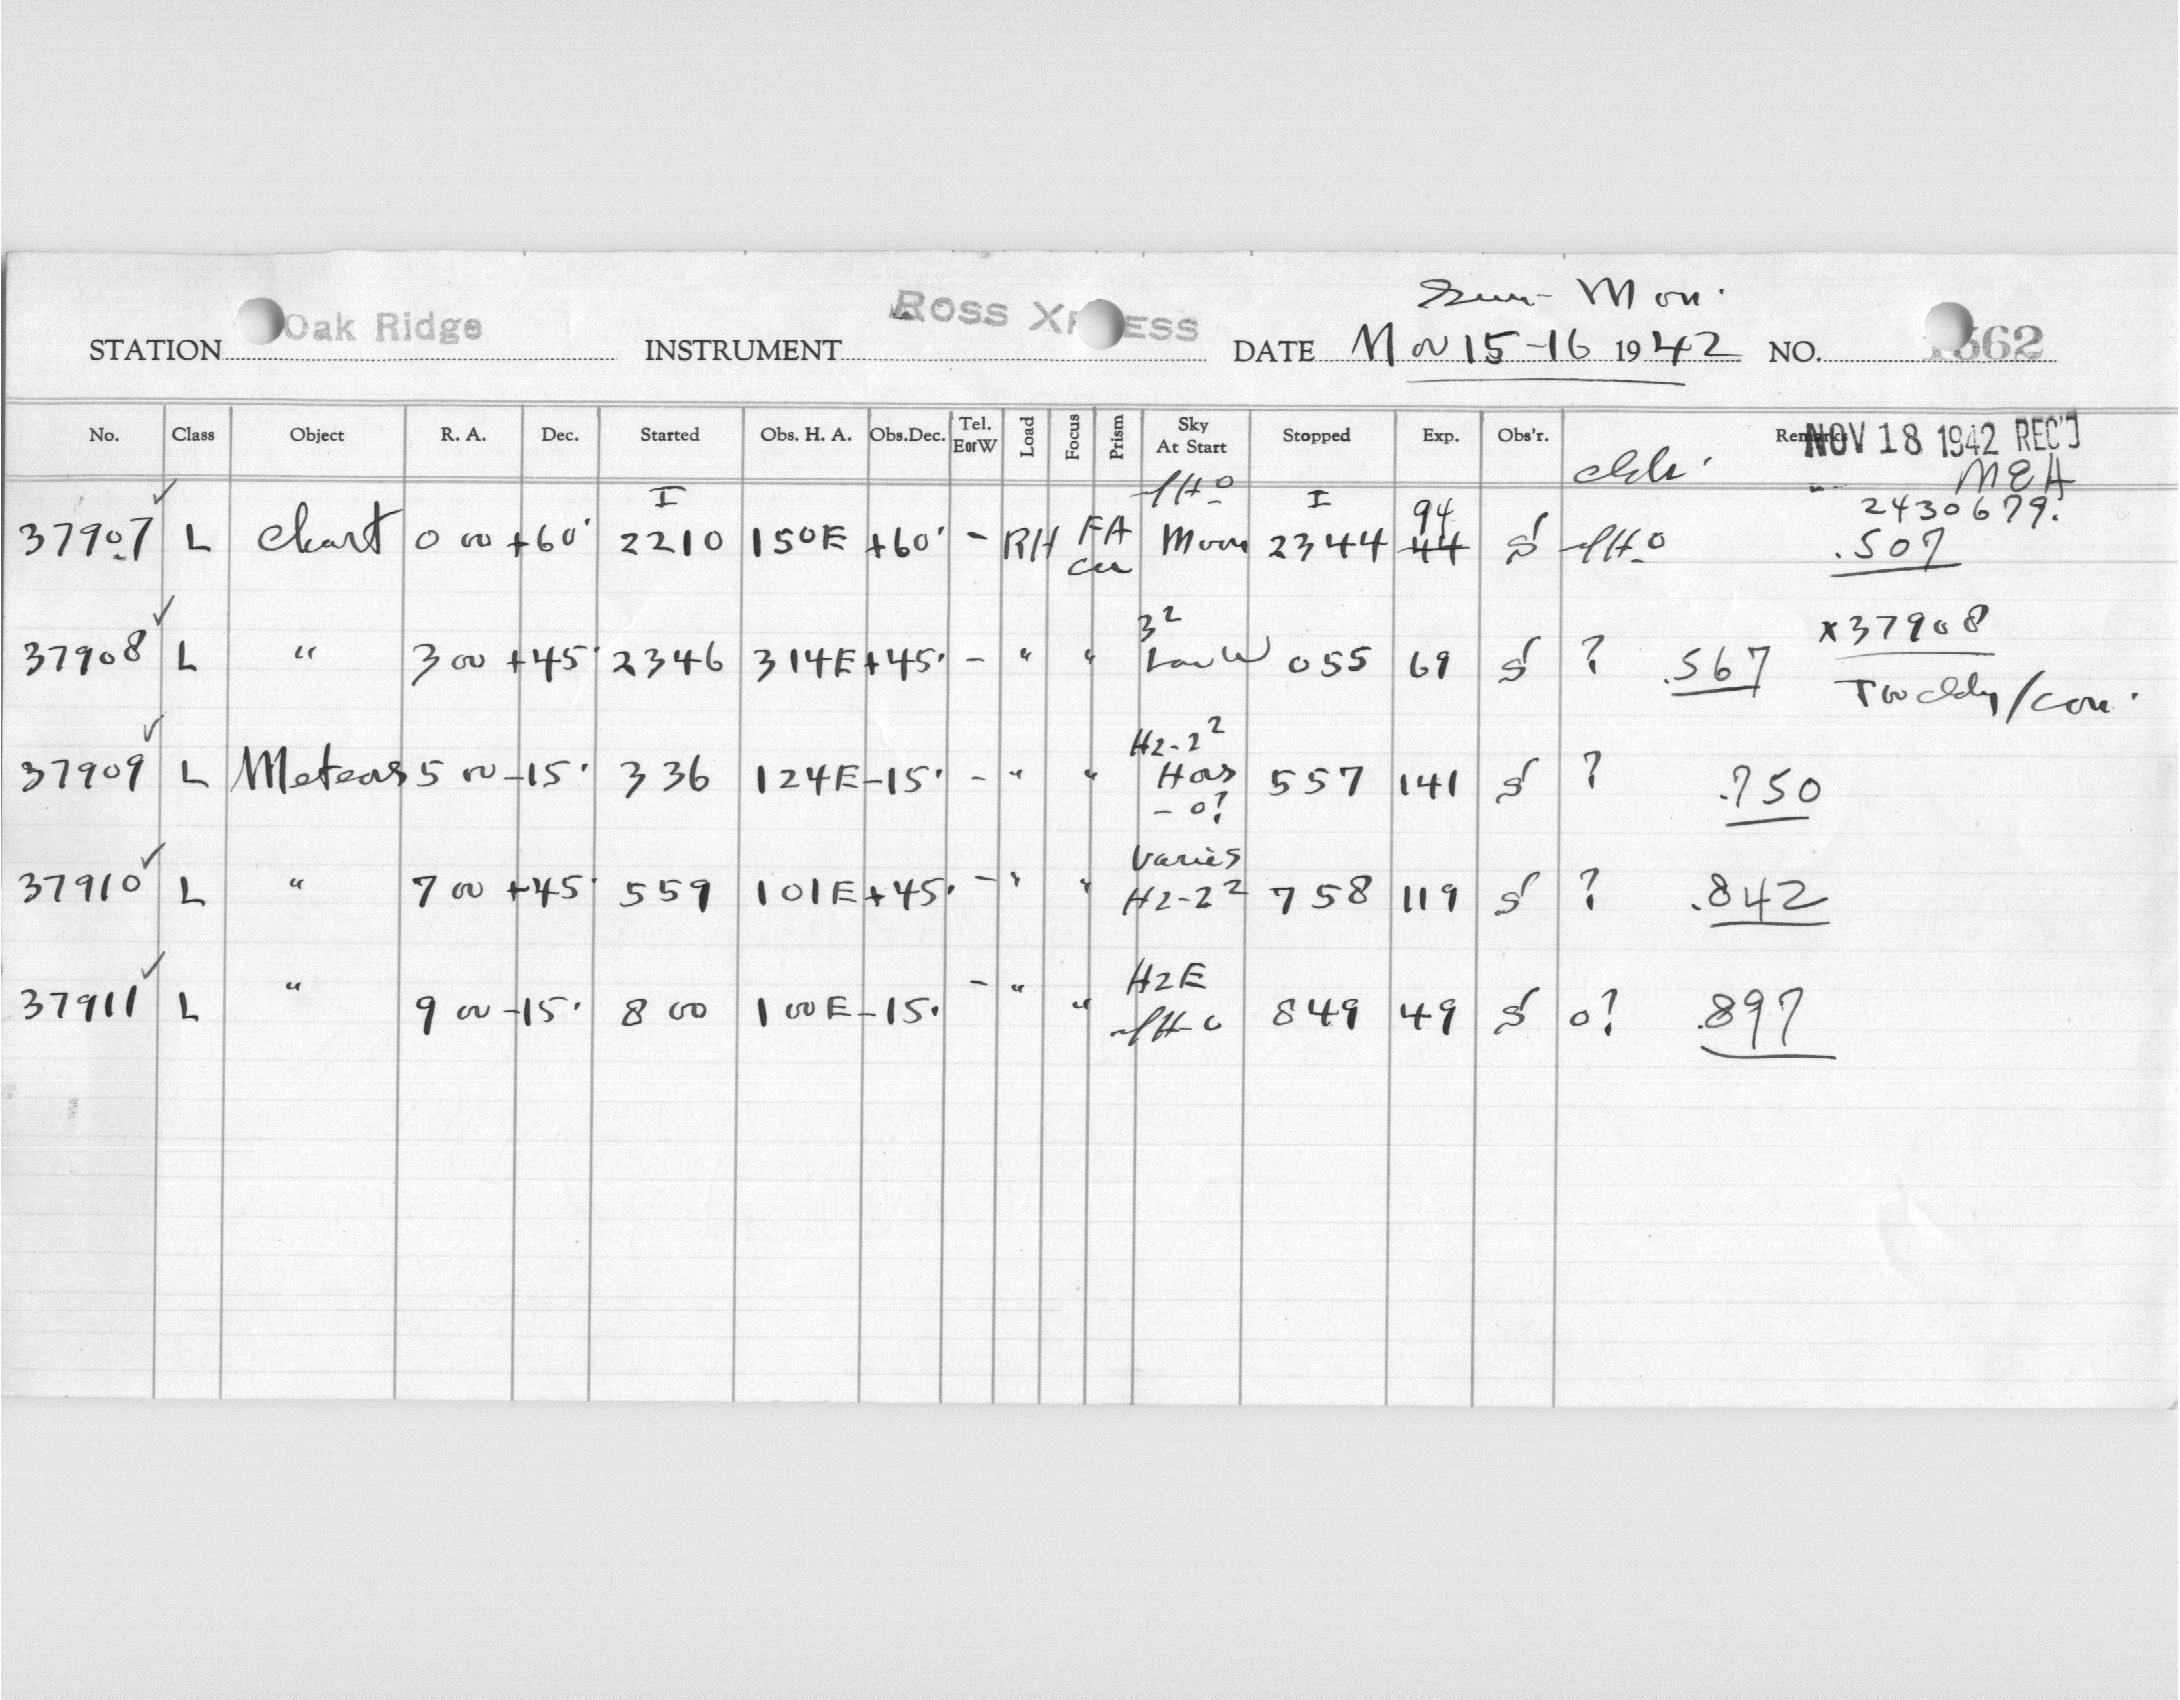 Sun - Mon.
STATION Oak Ridge INSTRUMENT ROSS XPRESS DATE Nov 15-16 1942 NO. 1562
No. Class Object R. A. Dec. Started Obs. H. A. Obs.Dec. Tel. EorW Load Focus Prism Sky At Start Stopped Exp. Obs'r. Remarks
NOV 18 1942 REC'D
MEA
I I 94 2430679.
37907 ✓ L Chart 0 00 +60° 2210 150E +60° - RH FA Moon 2344 44 S .507
37908 ✓ L " 3 00 +45° 2346 314E +45° - " " 3² Low W 055 69 S ? .567 x37908
37909 ✓ L Meteors 5 00 -15° 336 124E -15° - " " H2-2² Hors - 0? 557 141 S ? .750
37910 ✓ L " 7 00 +45° 559 101E +45° - " " Varies H2-2² 758 119 S ? .842
37911 ✓ L " 9 00 -15° 800 100E -15° - " " H2E 849 49 S 0? .897